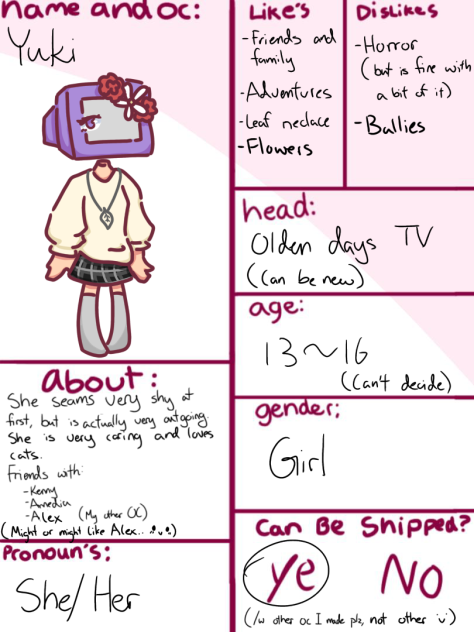 name and oc:
Yuki
Like's
-Friends and
family
-Adventures
-Leaf neclace
-Flowers
Dislikes
-Horror
(but is fine with
a bit of it)
-Bullies
head:
Olden days TV
(Can be new)
age:
13~16
(Can't decide)
gender:
Girl
about:
She seams very shy at
first, but is actually very outgoing.
She is very caring and loves
cats.
Friends with:
-Kenny
-Alex (My other OC)
(Might or might like Alex..
Pronoun's:
She/Her
Can Be Shipped?
Ye No
(/w other oc I made plz, not other